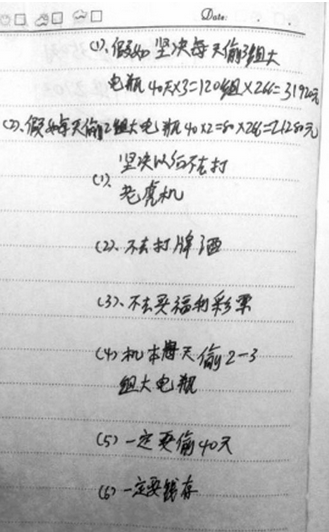 Date:
(1)、假如坚决每天偷3组大
电瓶 40天×3=120组×266=31920元
(2)、假如每天偷2组大电瓶 40×2=80×266=21280元
坚决以后不去打
(1)、
老虎机
(2)、不去打牌酒
(3)、不去买福利彩票
(4) 机本每天偷2-3
组大电瓶
(5) 一定要偷40天
(6) 一定要钱存